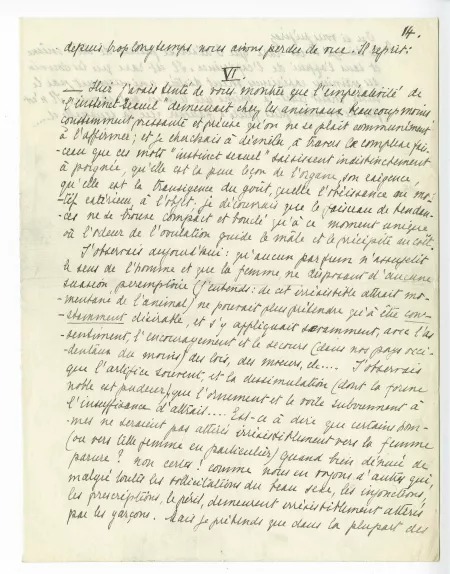 14.
depuis trop longtemps nous avions perdue de vue. Il reprit:
VI
— Hier j'avais tenté de vous montrer que l'impérativité de
"l'instinct sexuel" demeurait chez les animaux beaucoup moins
constamment pressante et précise qu'on ne se plaît communément
à l'affirmer; et je cherchais à démêler, à travers le complexe fais-
-ceau que ces mots "instinct sexuel" saisissent indistinctement
à poignée, quelle est la pure leçon de l'organe, son exigence,
qu'elle est la transigence du goût, quelle l'obéissance au mo-
-tif extérieur, à l'objet; je découvrais que le faisceau de tendan-
-ces ne se trouve compact et boudé qu'à ce moment unique
où l'odeur de l'ovulation guide le mâle et le précipite au coït.
J'observais aujourd'hui: qu'aucun parfum n'assujettit
le sens de l'homme et que la femme ne disposant d'aucune
suasion péremptoire (j'entends: de cet irrésistible attrait mo-
-mentané de l'animal) ne pouvait plus prétendre qu'à être con-
-stamment désirable, et s'y appliquait savamment, avec l'as-
-sentiment, l'encouragement et le secours (dans nos pays occi-
-dentaux du moins) des lois, des mœurs, de.... J'observais
que l'artifice souvent, et la dissimulation (dont la forme
noble est pudeur,) que l'ornement et le voile subviennent à
l'insuffisance d'attraits.... Est-ce à dire que certains hom-
-mes ne seraient pas attirés irrésistiblement vers la femme
(ou vers telle femme en particulier) quand bien dénuée de
parure? non certes! comme nous en voyons d'autres qui,
malgré toutes les sollicitations du beau sexe, les injonctions,
les prescriptions, le péril, demeurent irrésistiblement attirés
par les garçons. Mais je prétends que dans la plupart des